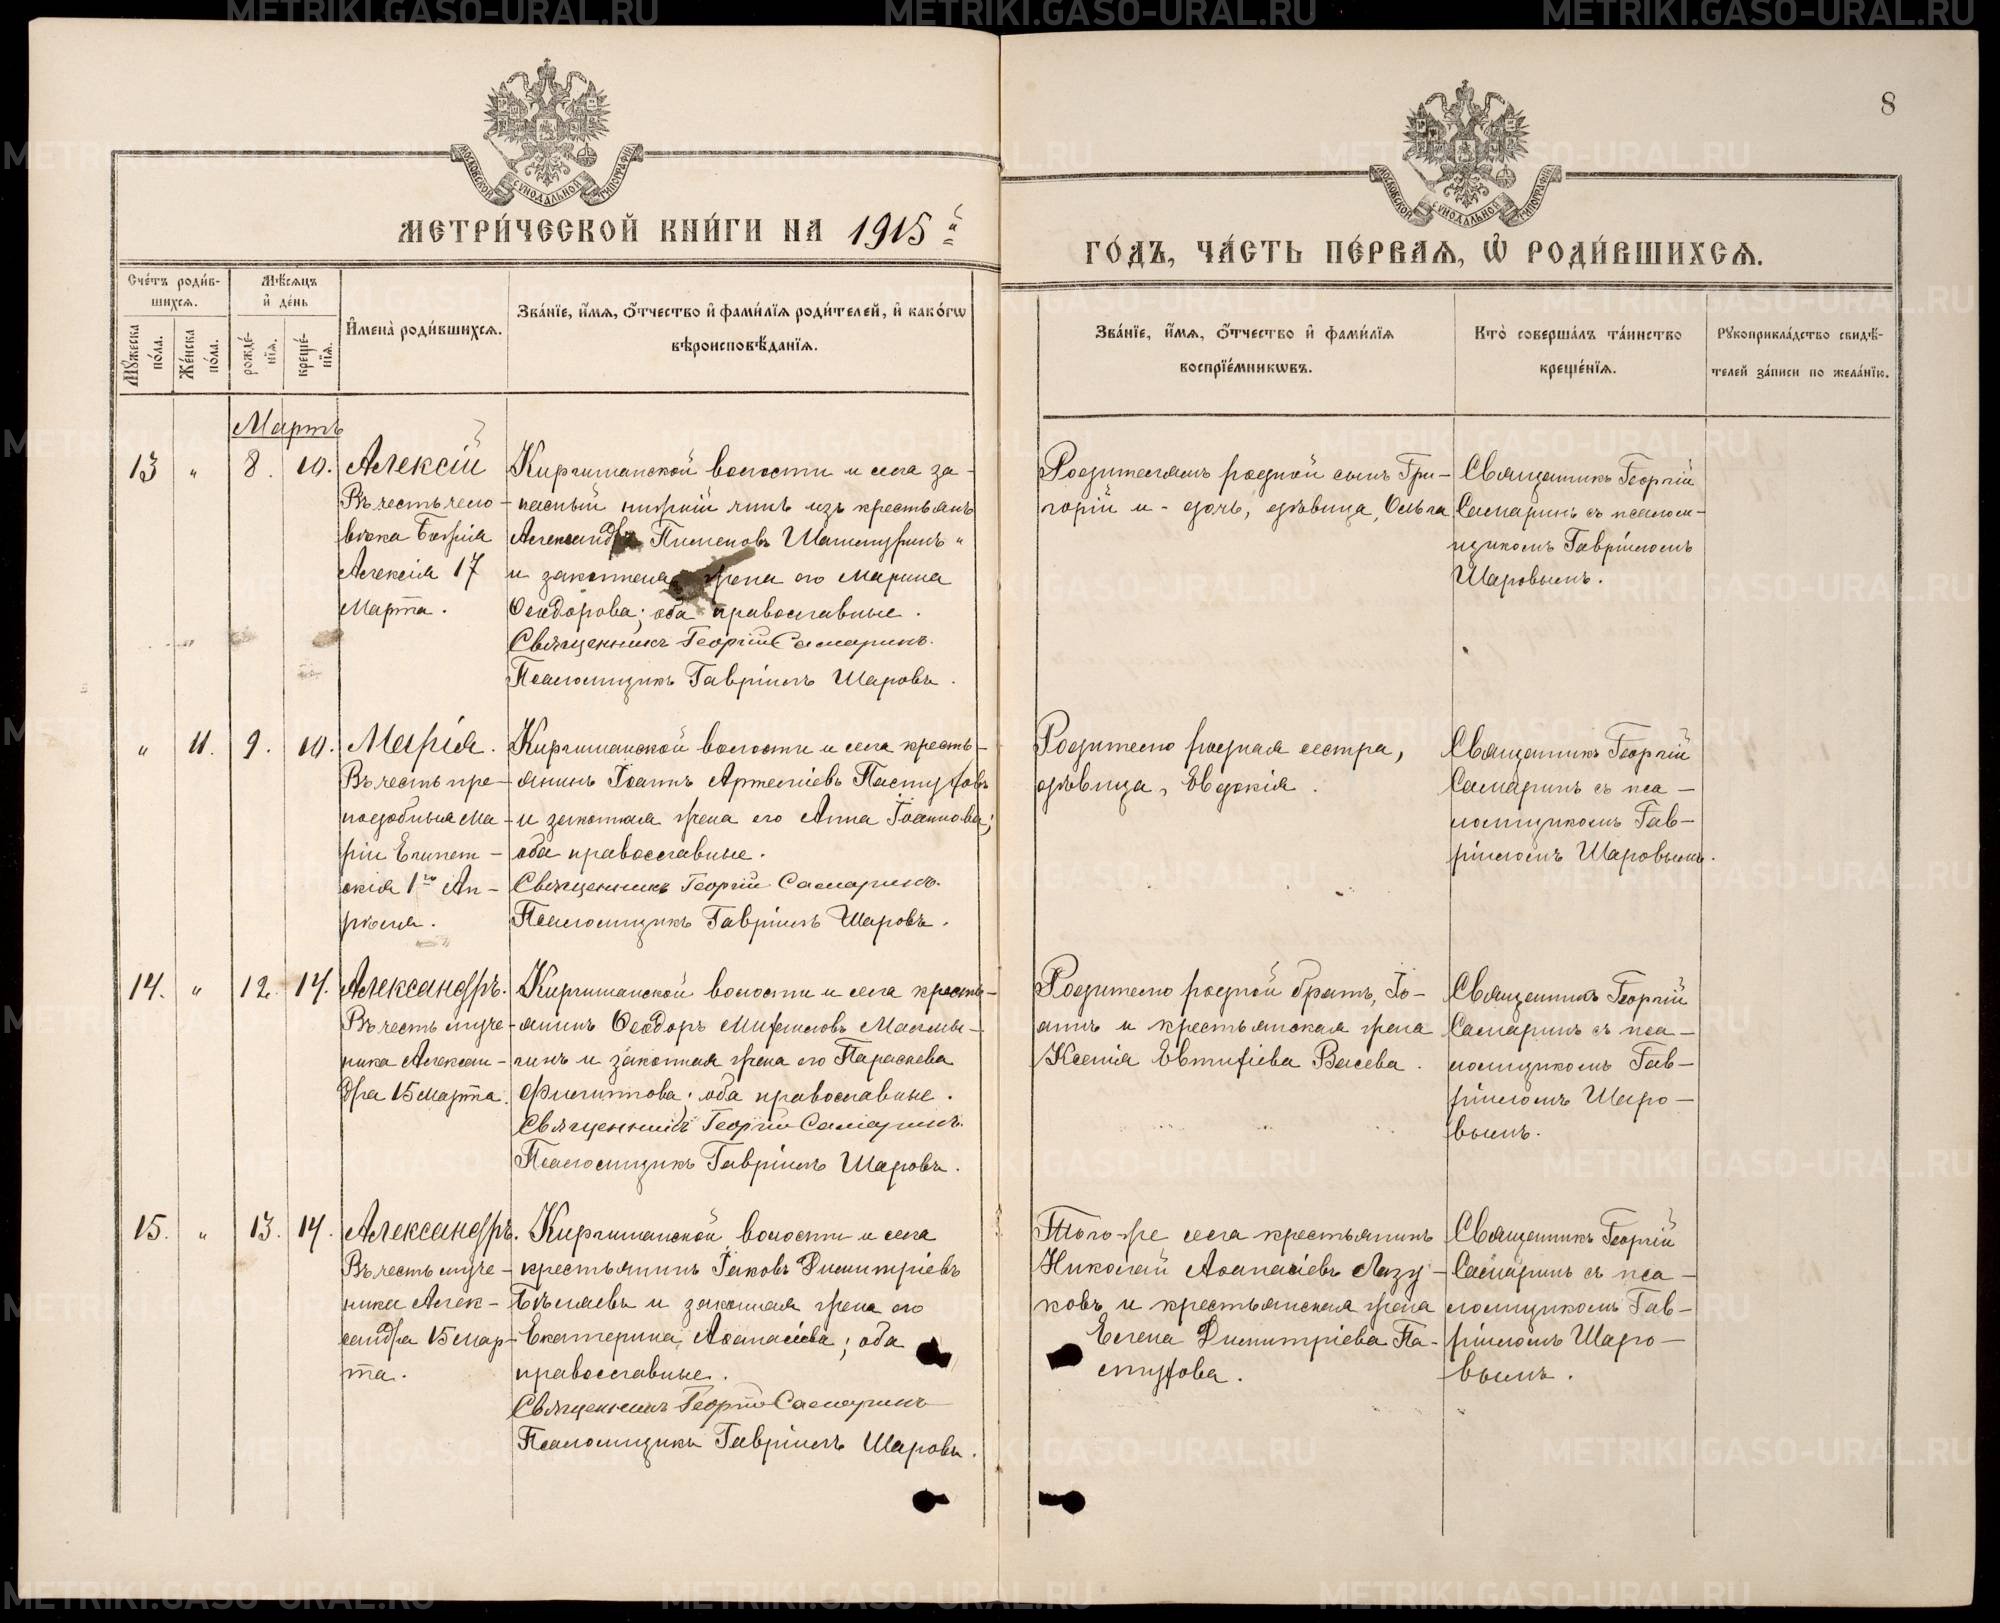 8
МОСКОВСКОЙ СѴНОДАЛЬНОЙ ТИПОГРАФІИ
МОСКОВСКОЙ СѴНОДАЛЬНОЙ ТИПОГРАФІИ
МЕТРИ́ЧЕСКОЙ КНИ́ГИ НА 1915 й
ГО́ДЪ, ЧА́СТЬ ПЕ́РВАѦ, Ѡ҆ РОДИ́ВШИХСѦ.
Сче́тъ роди́в-
шихсѧ.
Мꙋ́жеска по́ла.
Же́нска по́ла.
Мѣ́сѧцъ
и҆ де́нь
рожде́-
нїѧ.
креще́-
нїѧ.
И҆мена̀ роди́вшихсѧ.
Зва́нїе, и҆́мѧ, ѻ҆́тчество и҆ фами́лїѧ роди́телей, и҆ како́гѡ
вѣроисповѣ́данїѧ.
Зва́нїе, и҆́мѧ, ѻ҆́тчество и҆ фами́лїѧ
воспрїе́мникѡвъ.
Кто̀ соверша́лъ та́инство
креще́нїѧ.
Рꙋкоприкла́дство свидѣ́-
телей за́писи по жела́нїю.
Мартъ
13 " 8. 10.
Алексій
Въ честь чело-
вѣка Божія
Алексія 17
Марта.
Киргишанской волости и села за-
пасный нижній чинъ изъ крестьянъ
Александръ Пименовъ Шашмуринъ "
и законная жена его Марина
Ѳеодорова; оба православные.
Священникъ Георгій Самаринъ.
Псаломщикъ Гавріилъ Шаровъ.
Родителямъ родной сынъ Гри-
горій и - дочь, дѣвица, Ольга
Священникъ Георгій
Самаринъ съ псалом-
щикомъ Гавріиломъ
Шаровымъ.
" 11. 9. 10.
Марія.
Въ честь пре-
подобныя Ма-
ріи Египет-
скія 1го Ап-
рѣля.
Киргишанской волости и села кресть-
янинъ Іоаннъ Артеміевъ Пастуховъ
и законная жена его Анна Іоаннова;
оба православные.
Священникъ Георгій Самаринъ.
Псаломщикъ Гавріилъ Шаровъ.
Родителю родная сестра,
дѣвица, Евдокія.
Священникъ Георгій
Самаринъ съ пса-
ломщикомъ Гав-
ріиломъ Шаровымъ.
14. " 12. 14.
Александръ.
Въ честь муче-
ника Алексан-
дра 15 марта.
Киргишанской волости и села кресть-
янинъ Ѳеодоръ
и законная жена его Параскева
Филиппова; оба православные.
Священникъ Георгій Самаринъ.
Псаломщикъ Гавріилъ Шаровъ.
Родителю родной братъ, Іо-
аннъ и крестьянская жена
Ксенія Евтихіева Васева.
Священникъ Георгій
Самаринъ съ пса-
ломщикомъ Гав-
ріиломъ Шаро-
вымъ.
15. " 13. 14.
Александръ.
Въ честь муче-
ника Алек-
сандра 15 мар-
та.
Киргишанской волости и села
крестьянинъ Іаковъ Димитріевъ
Бѣляевъ и законная жена его
Екатерина Аѳанасіева; оба
православные.
Священникъ Георгій Самаринъ
Псаломщикъ Гавріилъ Шаровъ.
Того-же села крестьянинъ
Николай Аѳанасіевъ Лазу-
ковъ и крестьянская жена
Елена Димитріева Па-
стухова.
Священникъ Георгій
Самаринъ съ пса-
ломщикомъ Гав-
ріиломъ Шаро-
вымъ.
METRIKI.GASO-URAL.RU